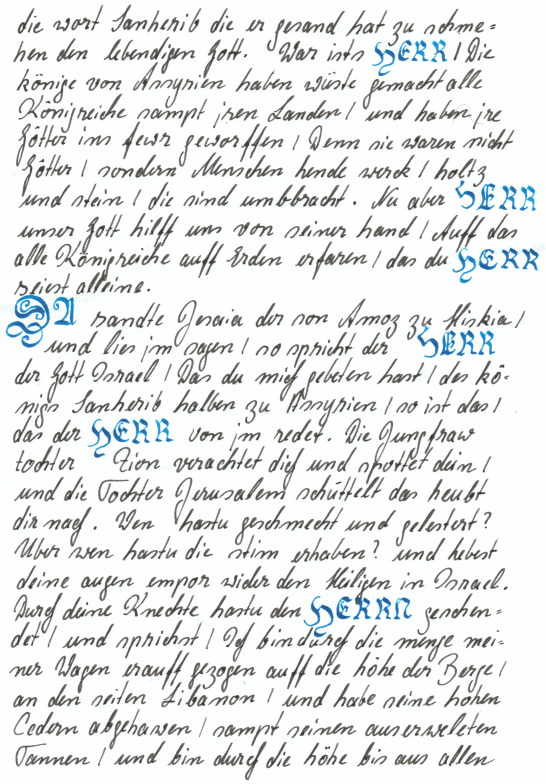 die wort Sanherib die er gesand hat zu schme=
hen den lebendigen Gott. War ists HERR / Die
könige von Assyrien haben wüste gemacht alle
Königreiche sampt jren Landen / und haben jre
Götter ins fewr geworffen / Denn sie waren nicht
Götter / sondern Menschen hende werck / holtz
und stein / die sind umbbracht. Nu aber HERR
unser Gott hilff uns von seiner hand / Auff das
alle Königreiche auff Erden erfaren / das du HERR
seiest alleine.
DA sandte Jesaia der son Amoz zu Hiskia /
und lies jm sagen / so spricht der HERR
der Gott Israel / Das du mich gebeten hast / des kö-
nigs Sanherib halben zu Assyrien / so ist das /
das der HERR von jm redet. Die Jungfraw
tochter Zion verachtet dich und spottet dein /
und die Tochter Jerusalem schüttelt das heubt
dir nach. Wen hastu geschmecht und gelestert?
Uber wen hastu die stim erhaben? und hebest
deine augen empor wider den Heiligen in Israel.
Durch deine Knechte hastu den HERRN geschen=
det / und sprichst / Ich bin durch die menge mei-
ner Wagen erauff gezogen auff die höhe der Berge /
an den seiten Libanon / und habe seine hohen
Cedern abgehawen / sampt seinen auserweleten
Tannen / und bin durch die höhe bis aus allen